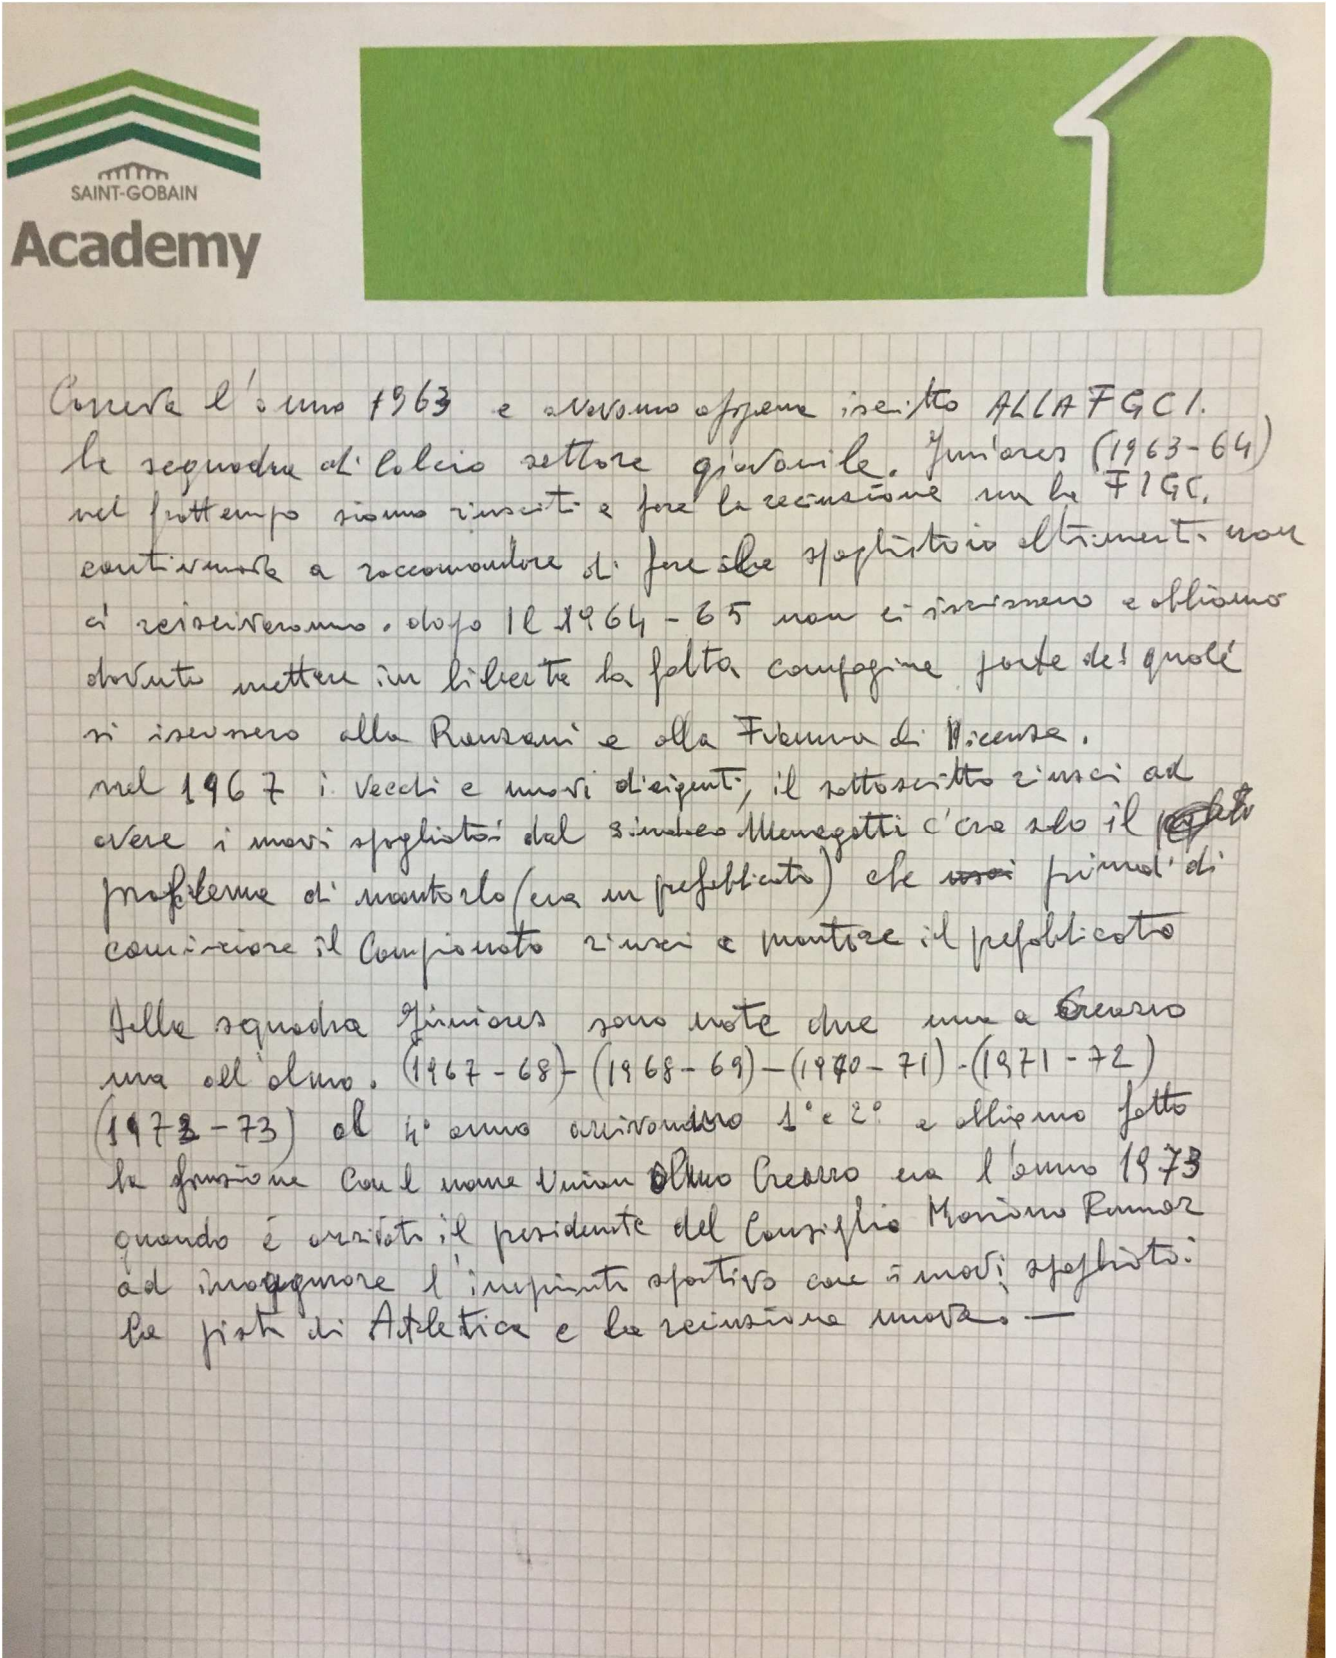 SAINT-GOBAIN
Academy
Correva l'anno 1963 e avevamo appena iscritto ALLA FGCI.
la sequadra di Calcio settore giovanile. Juniores (1963-64)
nel frattempo siamo riusciti a fare la recinsione ma la FIGC.
continuava a raccomandare di fare lo spogliatoio altrimenti non
ci reiscriveranno. dopo Il 1964-65 non ci iscrissero e abbiamo
dovuto mettere in libertà la folta compagine parte dei quali
si iscrissero alla Ranzani e alla Fiamma di Vicenza.
nel 1967 i vecchi e nuovi dirigenti, il sottoscritto riusci ad
avere i nuovi spogliatoi dal sindaco Menegatti c'era solo il
problema di montarlo (era un prefabbricato) che prima di
cominciare il Campionato riusci a montare il prefabbricato
Della squadra Juniores sono nate due una a Creazzo
una all'olmo. (1967-68)-(1968-69)-(1970-71)-(1971-72)
(1972-73) al 4° anno arrivando 1° e 2° e abbiamo fatto
la fusione con l nome Union Olmo Creazzo era l'anno 1973
quando è arrivato il presidente del Consiglio Mariano Rumor
ad inaugurare l'impianto sportivo con i nuovi spogliatoi
la pista di Atletica e la recinsione nuova. —